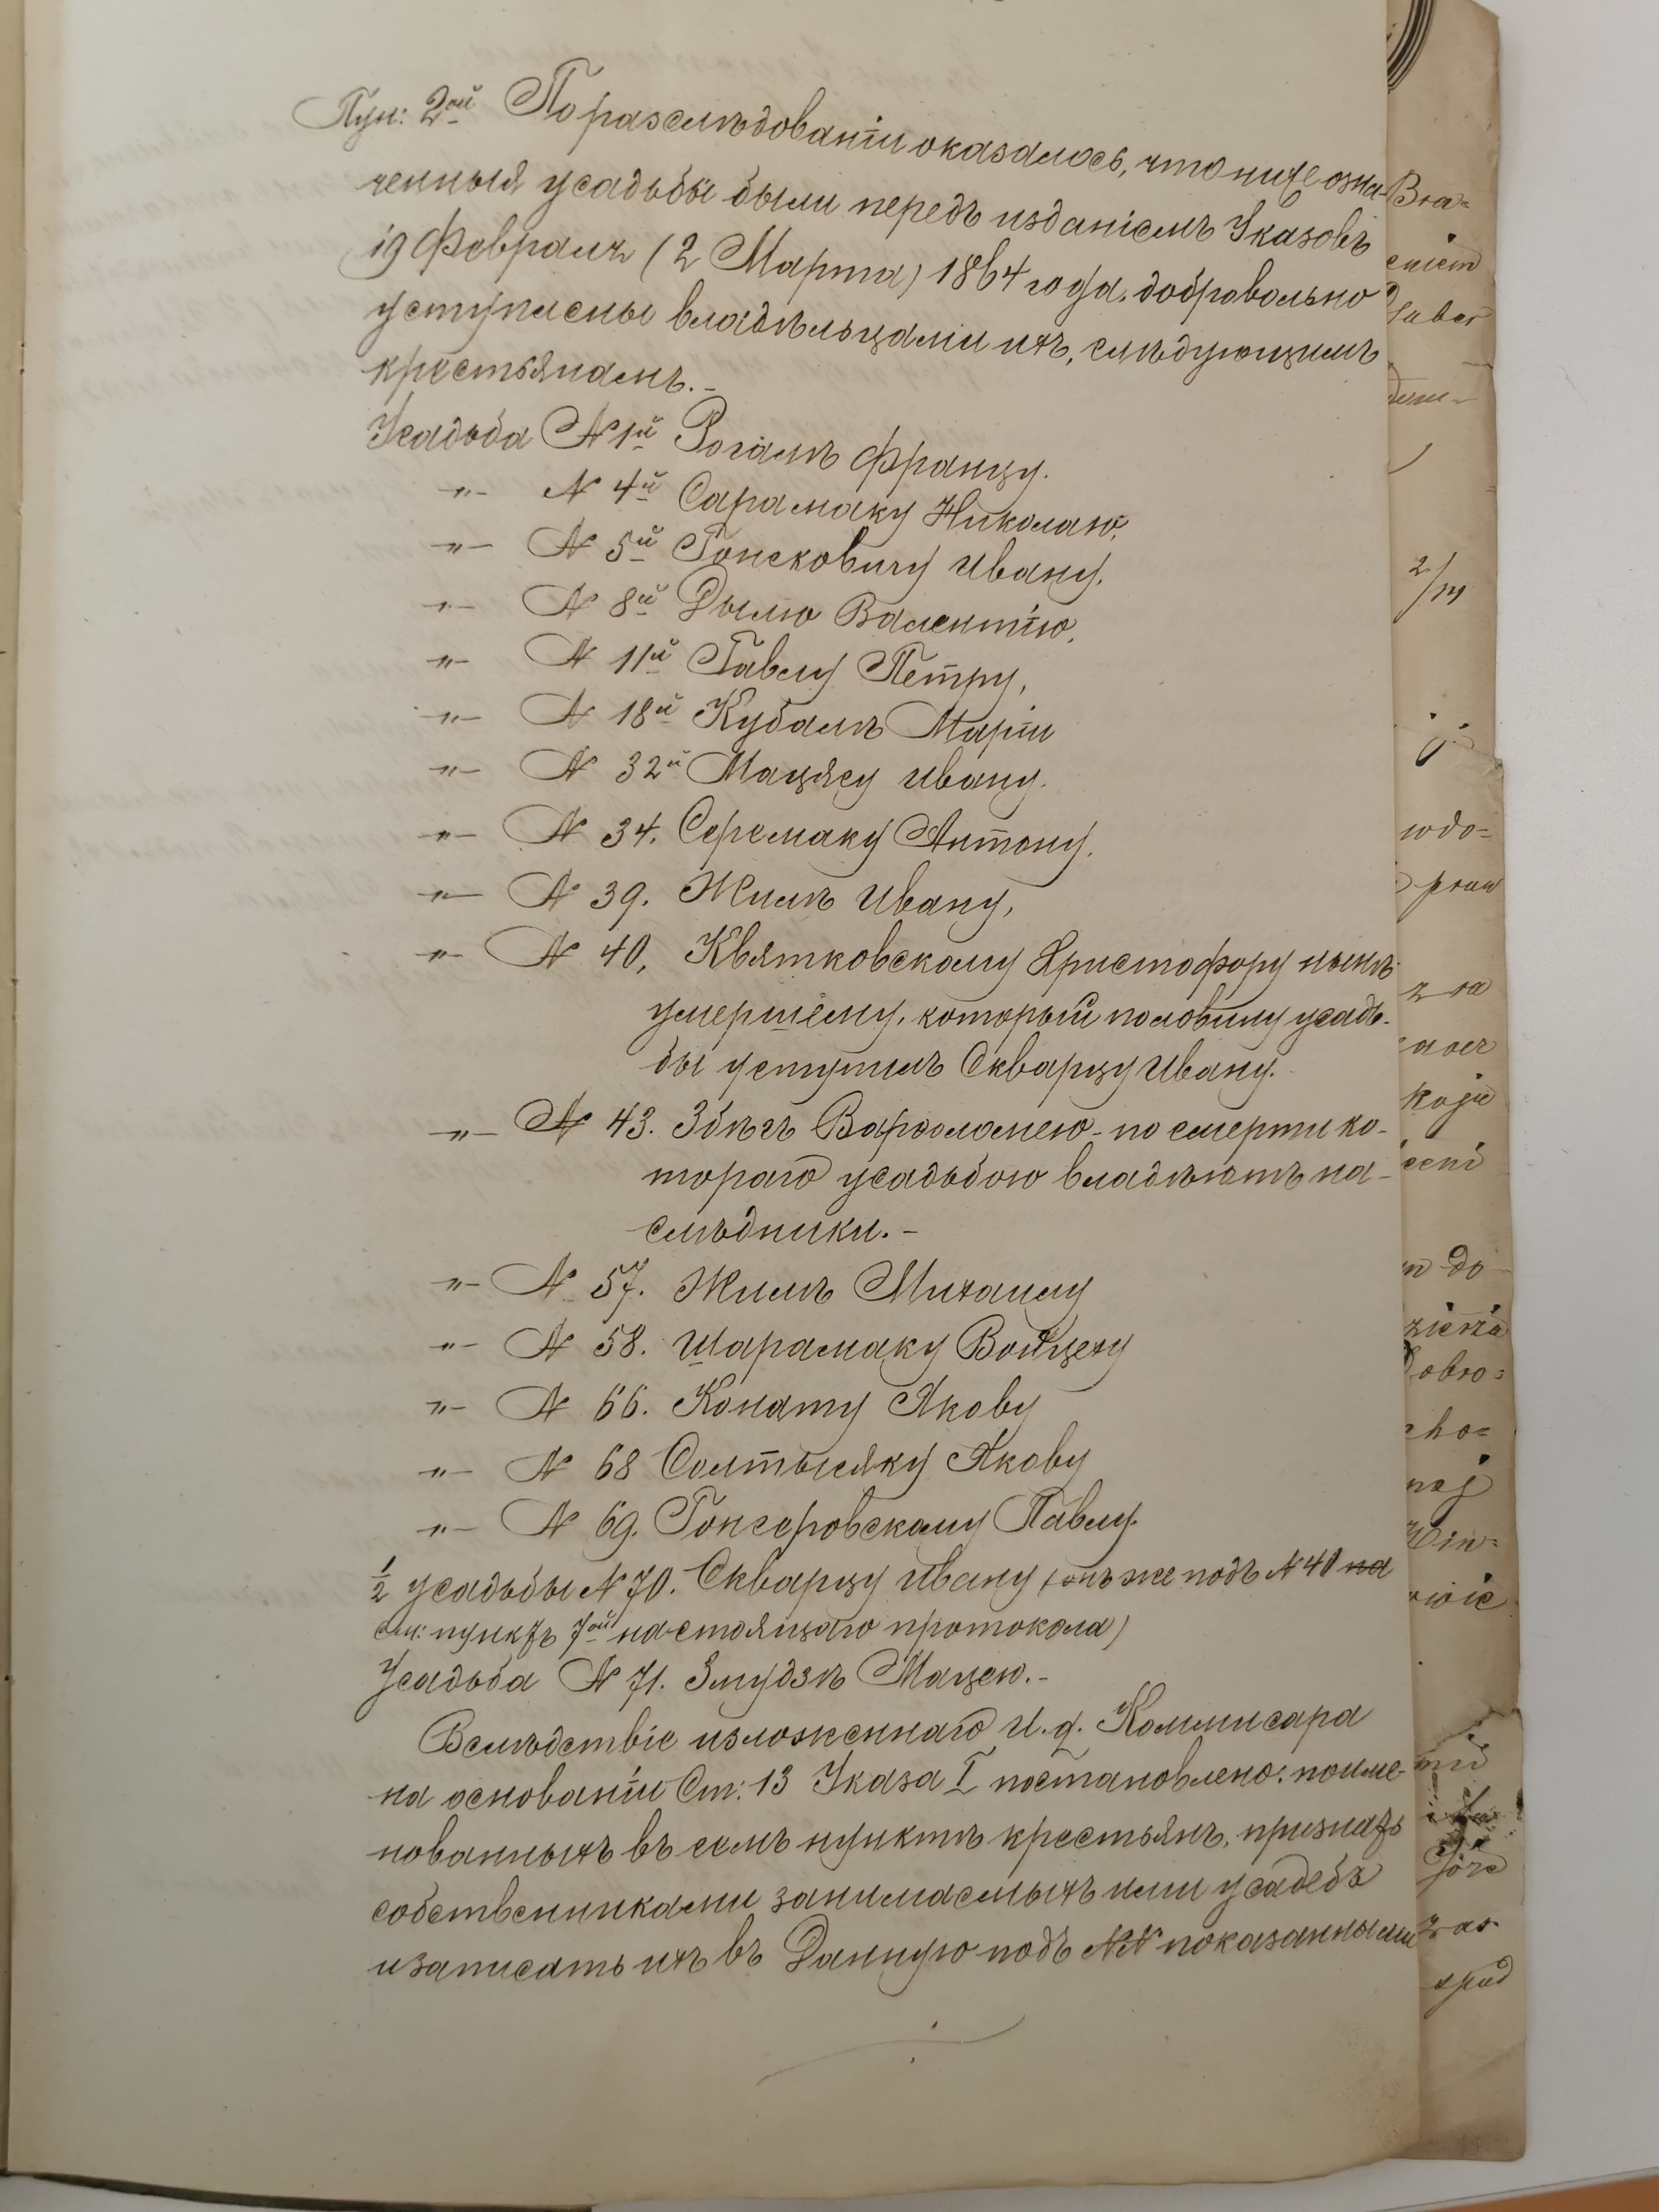 Пун: 2ой По разслѣдованіи оказалось, что ниже озна-
ченныя усадьбы были передъ изданіемъ Указовъ
19 Февраля (2 Марта) 1864 года, добровольно
уступлены владѣльцами ихъ, слѣдующимъ
крестьянамъ.-
Усадьба № 1й Рогалѣ Францу.
-„- № 4й Сарамаку Николаю,
-„- № 5й Гонсковичу Ивану,
-„- № 8й Дылю Валентію,
-„- № 11й Гавлу Петру,
-„- № 18й Кубалѣ Маріи
-„- № 32й Мацясу Ивану.
-„- № 34. Серемаку Антону,
-„- № 39. Жилѣ Ивану,
-„- № 40, Квятковскому Христофору нынѣ
умершему, который половину усадь-
бы уступилъ Скварцу Ивану.
-„- № 43. Збѣгъ Варфоломею - по смерти ко-
тораго усадьбою владѣютъ на-
слѣдники.-
-„- № 57. Жилѣ Михаилу
-„- № 58. Шарамаку Войцеху
-„- № 66. Конату Якову
-„- № 68 Солтысяку Якову
-„- № 69. Гонсеровскому Павлу.
½ усадьбы № 70. Скварцу Ивану (онъ же подъ № 40 на
см: пунктъ 7ой настоящаго протокола)
Усадьба № 71. Змудзѣ Мацею.-
Вслѣдствіе изложеннаго И. д. Коммисара
на основаніи Ст: 13 Указа I постановлено: поиме-
нованныхъ въ семъ пунктѣ крестьянъ, признать
собственниками занимаемыхъ ими усадебъ
и записать ихъ въ Данную подъ №№ показанными